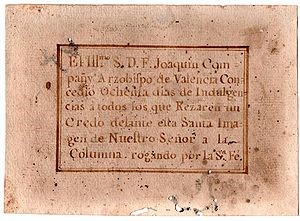 El Illmo S. D. F. Joaquin Com-
pañy Arzobispo de Valencia Con-
cedio Ochenta dias de Indulgen-
cias a todos los que Rezaren un
Credo delante esta Santa Ima-
gen de Nuestro Señor a la
Columna, rogando por la S. Fe.